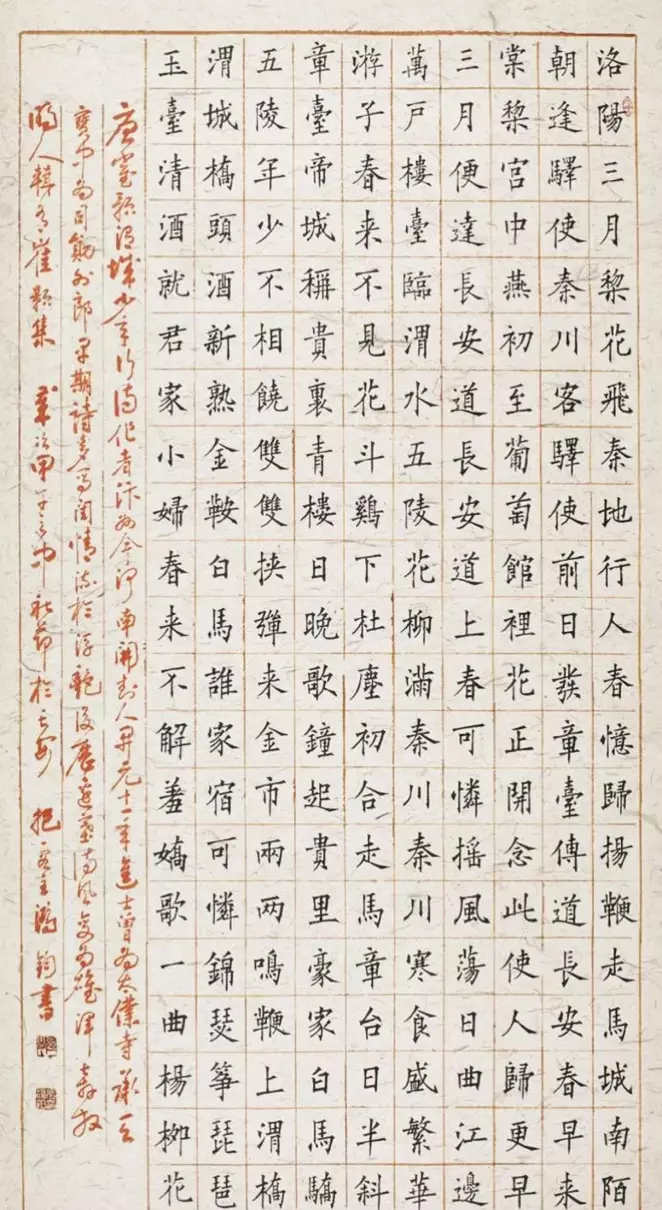 洛陽三月黎花飛秦地行人春憶歸揚鞭走馬城南陌
朝逢驛使秦川客驛使前日發章臺傳道長安春早来
棠黎宮中燕初至葡萄館裡花正開念此使人歸更早
三月便達長安道長安道上春可憐摇風蕩日曲江邊
萬戸樓臺臨渭水五陵花柳滿秦川秦川寒食盛繁華
游子春来不見花斗鷄下杜塵初合走馬章台日半斜
章臺帝城稱貴裏青樓日晚歌鐘起貴里豪家白馬驕
五陵年少不相饒雙雙挾彈来金市兩兩鳴鞭上渭橋
渭城橋頭酒新熟金鞍白馬誰家宿可憐錦瑟箏琵琶
玉臺清酒就君家小婦春来不解羞嬌歌一曲楊柳花
唐崔顥渭城少年行詩作者汴州今河南開封人開元十一年進士曾為太僕寺丞天
寶中為司勛員外郎早期詩多寫閨情流於浮艷後歷邊塞詩風變為雄渾奔放
明人輯有崔顥集 歲次甲 節於長安 主鴻鈞書